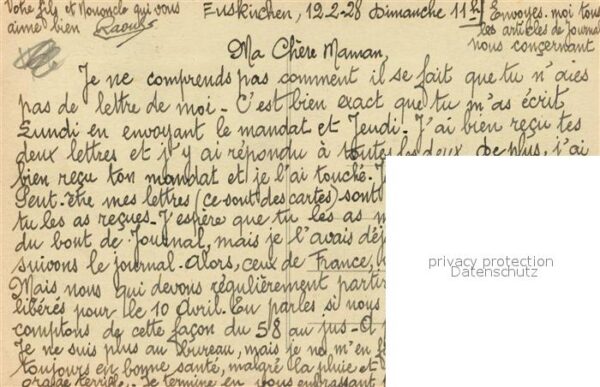 Votre fils et Nononcle qui vous
aime bien Raoul
Euskirchen, 12-2-28 Dimanche 11h
Envoyez-moi tous
les articles de journal
nous concernant
Ma Chère Maman,
Je ne comprends pas comment il se fait que tu n'aies
pas de lettre de moi - C'est bien exact que tu m'as écrit
Lundi en envoyant le mandat et Jeudi - J'ai bien reçu tes
deux lettres et j'y ai répondu à toutes les deux. De plus, j'ai
bien reçu ton mandat et je l'ai touché.
Peut-être mes lettres (ce sont des cartes) sont
tu les as reçues - J'espère que tu les as
du bout de Journal, mais je l'avais déj
suivons le journal - Alors, ceux de France,
Mais nous qui devons régulièrement parti
libérés pour le 10 Avril. En parles si nous
comptons de cette façon du 58 au jus -
Je ne suis plus au bureau, mais je ne m'en
toujours en bonne santé, malgré la pluie et
Je termine en vous embrassant
privacy protection
Datenschutz